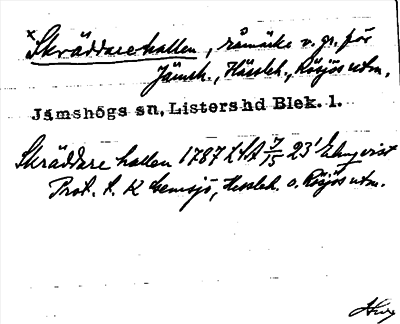 × Skräddarehallen, råmärke v. gr. för
Jämsh., Hässleh., Rösjös utm.
Jämshögs sn, Listers hd Blek. l.
Skräddare hallen 1787 LSA J/15 23' Elmqvist
Prot. t. K Gemsjö, Hessleh. o. Rösjös utm.